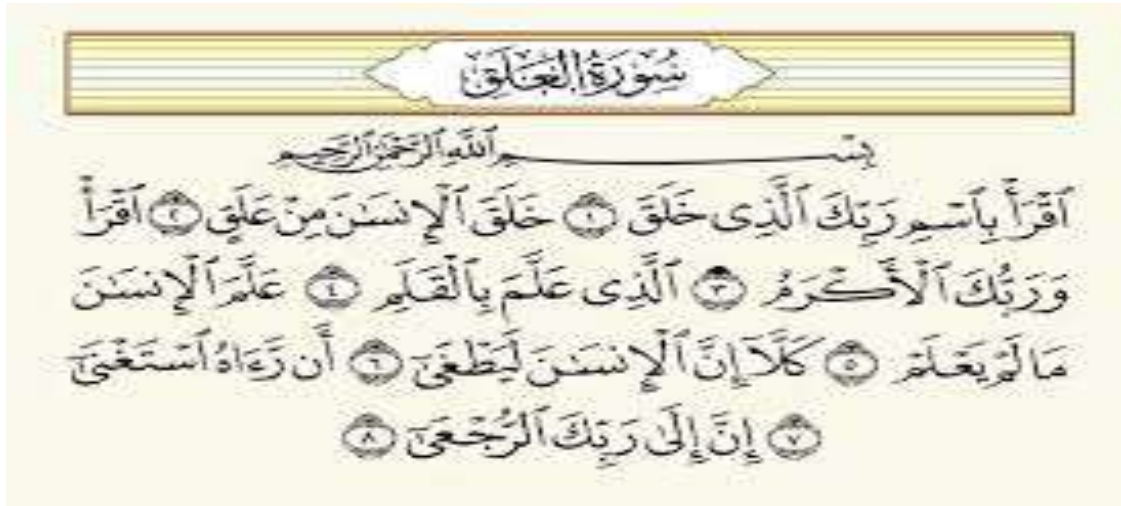 سُورَةُ العَلَقِ
بِسْمِ ٱللَّهِ ٱلرَّحْمَٰنِ ٱلرَّحِيمِ
ٱقْرَأْ بِٱسْمِ رَبِّكَ ٱلَّذِى خَلَقَ ١ خَلَقَ ٱلْإِنسَٰنَ مِنْ عَلَقٍ ٢ ٱقْرَأْ
وَرَبُّكَ ٱلْأَكْرَمُ ٣ ٱلَّذِى عَلَّمَ بِٱلْقَلَمِ ٤ عَلَّمَ ٱلْإِنسَٰنَ
مَا لَمْ يَعْلَمْ ٥ كَلَّآ إِنَّ ٱلْإِنسَٰنَ لَيَطْغَىٰٓ ٦ أَن رَّءَاهُ ٱسْتَغْنَىٰٓ
٧ إِنَّ إِلَىٰ رَبِّكَ ٱلرُّجْعَىٰٓ ٨